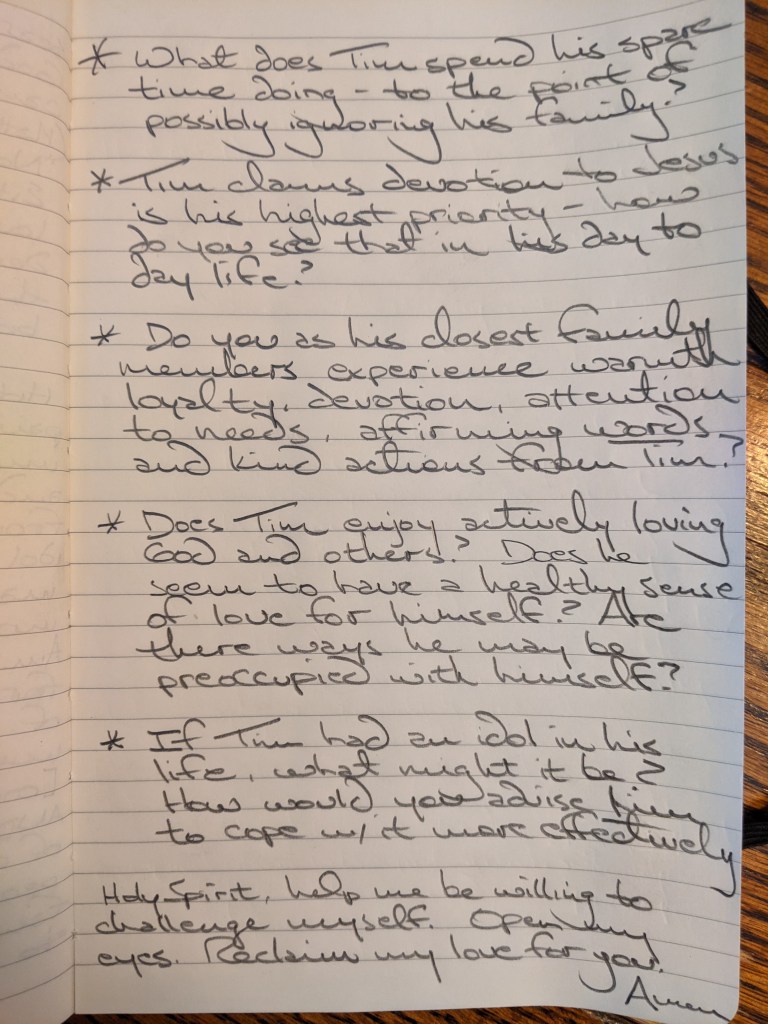 * What does Tim spend his spare
time doing - to the point of
possibly ignoring his family?
* Tim claims devotion to Jesus
is his highest priority - how
do you see that in his day to
day life?
* Do you as his closest family
members experience warmth
loyalty, devotion, attention
to needs, affirming words
and kind actions from Tim?
* Does Tim enjoy actively loving
God and others? Does he
seem to have a healthy sense
of love for himself? Are
there ways he may be
preoccupied with himself?
* If Tim had an idol in his
life, what might it be?
How would you advise him
to cope w/ it more effectively
Holy Spirit, help me be willing to
challenge myself. Open my
eyes. Reclaim my love for you.
Amen